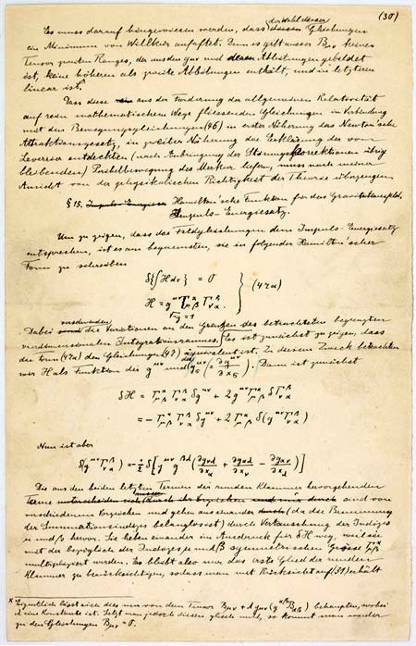 (30)
Es muss darauf hingewiesen werden, dass der Wahl dieser Gleichungen
ein Minimum von Willkür anhaftet. Denn es gibt ausser Bμν keinen
Tensor zweiten Ranges, der aus den gμν und deren Ableitungen gebildet
ist, keine höheren als zweite Ableitungen enthält, und in letzteren
linear ist.x
Dass diese aus der Forderung der allgemeinen Relativität
auf rein mathematischem Wege fliessenden Gleichungen in Verbindung
mit den Bewegungsgleichungen (46) in erster Näherung das Newton'sche
Attraktionsgesetz, in zweiter Näherung die Erklärung der von
Leverrier entdeckten (nach Anbringung der Störungskorrektionen übrig
bleibenden) Perihelbewegung des Merkur liefern, muss nach meiner
Ansicht von der physikalischen Richtigkeit der Theorie überzeugen.
§ 15. Hamilton'sche Funktion für das Gravitationsfeld,
Impuls-Energiesatz.
Um zu zeigen, dass die Feldgleichungen dem Impuls-Energiesatz
entsprechen, ist es am bequemsten, sie in folgender Hamilton'scher
Form zu schreiben
δ{∫H dτ} = 0
H = g^μν Γ^α_μβ Γ^β_να } (47a)
√-g = 1
Dabei verschwinden die Variationen an den Grenzen des betrachteten begrenzten
vierdimensionalen Integrationsraumes. Es ist zunächst zu zeigen, dass
die Form (47a) den Gleichungen (47) äquivalent ist. Zu diesem Zweck betrachten
wir H als Funktion der g^μν und g^μν_σ (= ∂g^μν/∂x_σ). Dann ist zunächst
δH = Γ^α_μβ Γ^β_να δg^μν + 2 g^μν Γ^α_μβ δΓ^β_να
= - Γ^α_μβ Γ^β_να δg^μν + 2 Γ^α_μβ δ(g^μν Γ^β_να)
Nun ist aber
δ(g^μν Γ^β_να) = - ½ δ[g^μν g^βλ (∂g_νλ/∂x_α + ∂g_αλ/∂x_ν - ∂g_αν/∂x_λ)]
Die aus den beiden letzten Termen der runden Klammer hervorgehenden
Terme sind von
verschiedenem Vorzeichen und gehen auseinander (da die Benennung
der Summationsindizes belanglos ist) durch Vertauschung der Indizes
μ und β hervor. Sie heben einander im Ausdruck für δH weg, weil sie
mit der bezüglich der Indizes μ und β symmetrischen Grösse Γ^α_μβ
multipliziert werden. Es bleibt also nur das erste Glied der runden
Klammer zu berücksichtigen, sodass man mit Rücksicht auf (31) erhält
x Eigentlich lässt sich dies nur von dem Tensor Bμν + λ gμν (g^αβ Bαβ) behaupten, wobei
λ eine Konstante ist. Setzt man jedoch diesen gleich null, so kommt man wieder
zu den Gleichungen Bμν = 0.